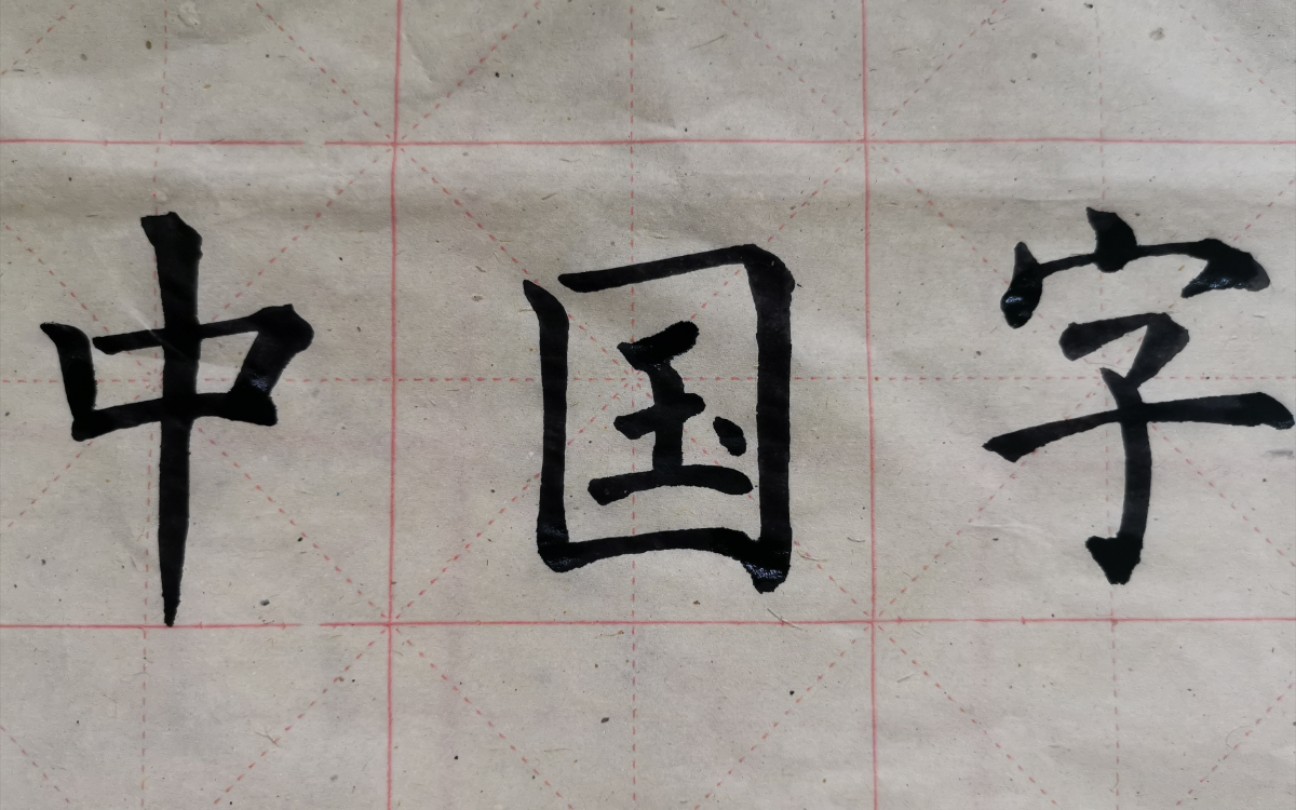 中国字